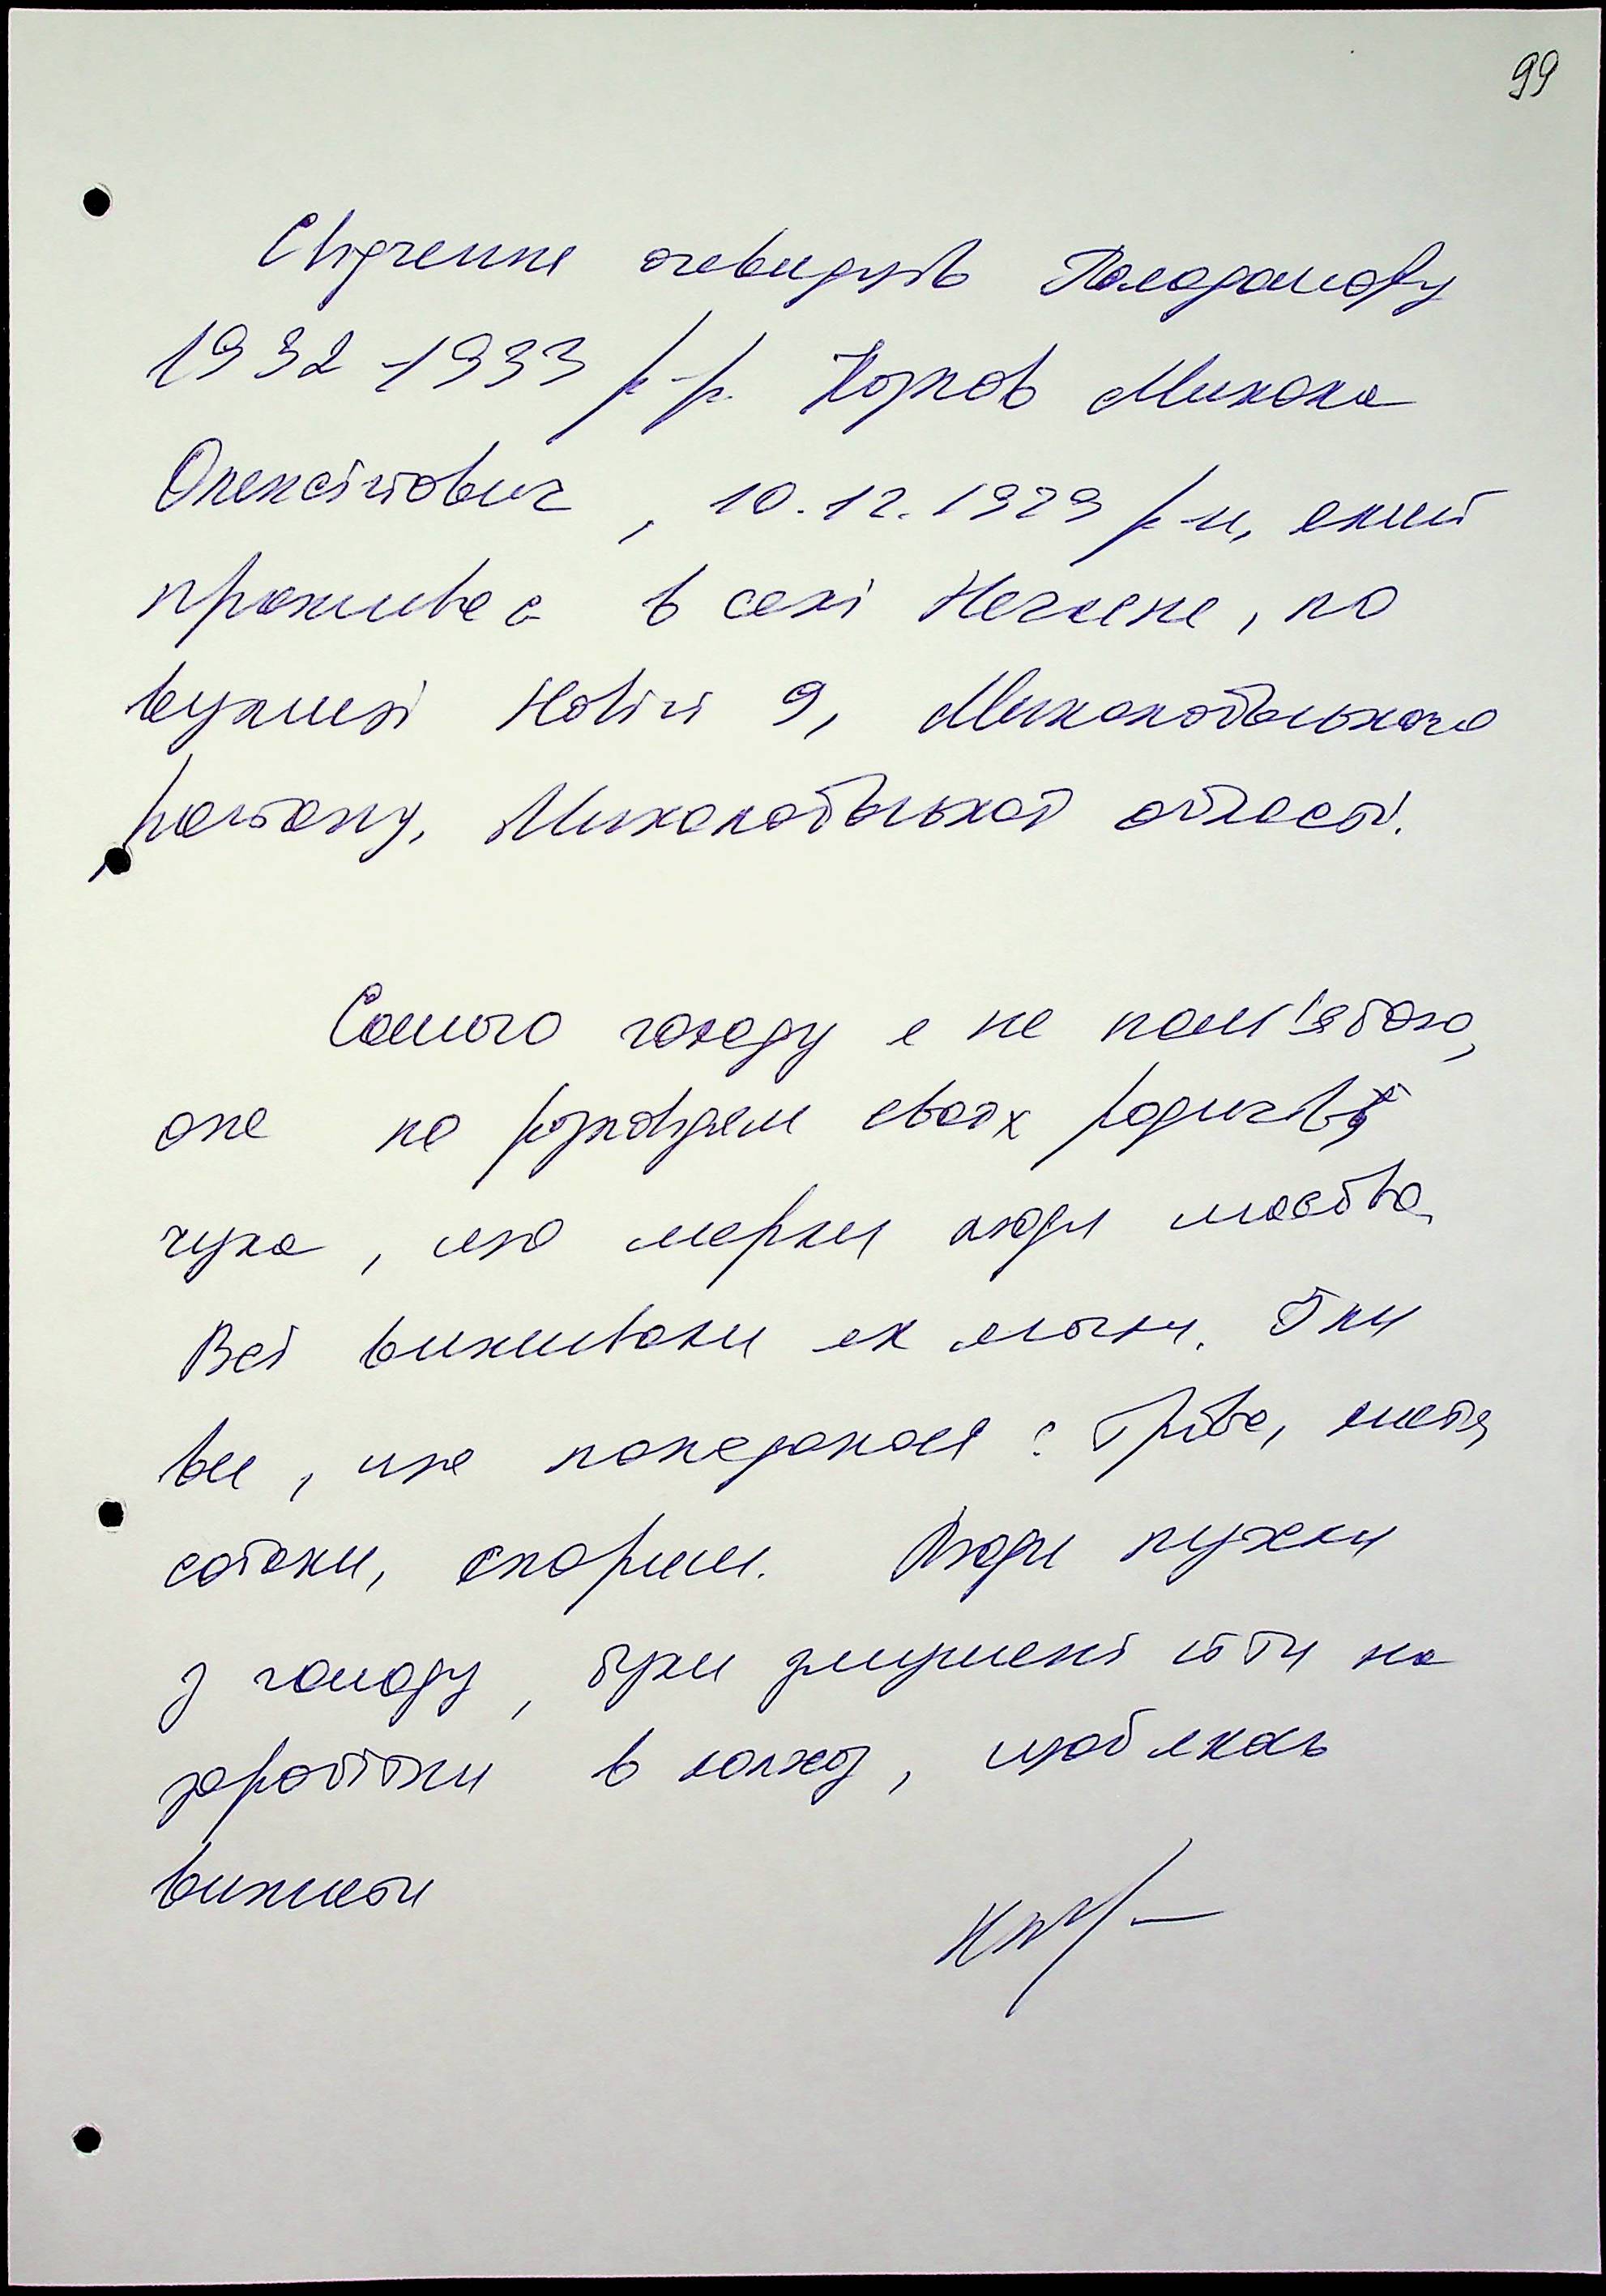 99
Свідчення очевидців Голодомору
1932-1933 р-р. Козлов Микола
Олексійович, 10.12.1929 р-н, який
проживає в селі Нечаяне, по
вулиці Новій 9, Миколаївського
району, Миколаївської області.
Самого голоду я не пам'ятаю,
але по розповідям своїх родичів
чула, що мерли люди масово,
Всі виживали як могли. Їли
все, що попадалося: Трава, листя,
собаки, ховрахи. Люди пухли
з голоду, були змушені йти на
заробітки в колхоз, щоб якось
вижити